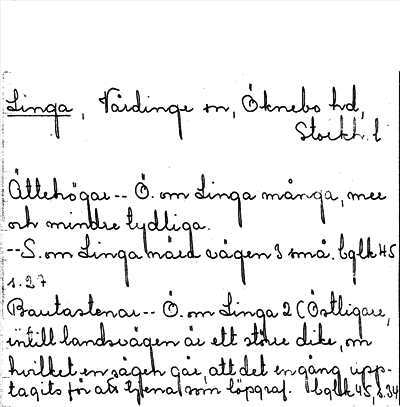 Linga, Vårdinge sn, Öknebo hd,
Stockh. l
Ättehögar -- Ö. om Linga många, mer
och mindre tydliga.
-- S. om Linga nära vägen 3 små. bglk 45
s. 27
Bautastenar -- Ö. om Linga 2 (Östligare,
intill landsvägen är ett större dike, om
hvilket en sägen går, att det en gång upp-
tagits för att tjena som löpgraf. bglk 45, s. 34